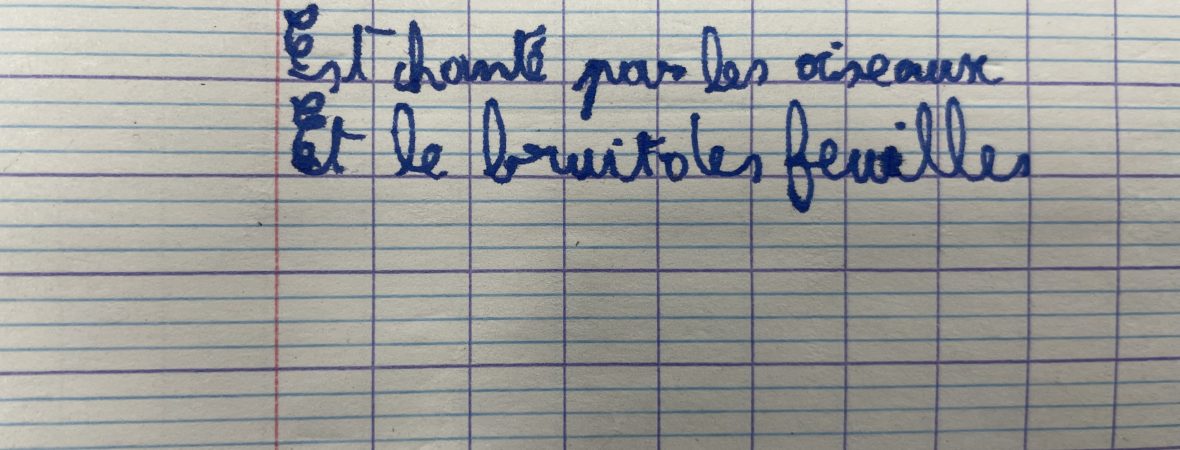 Est chanté par les oiseaux
Et le bruit des feuilles